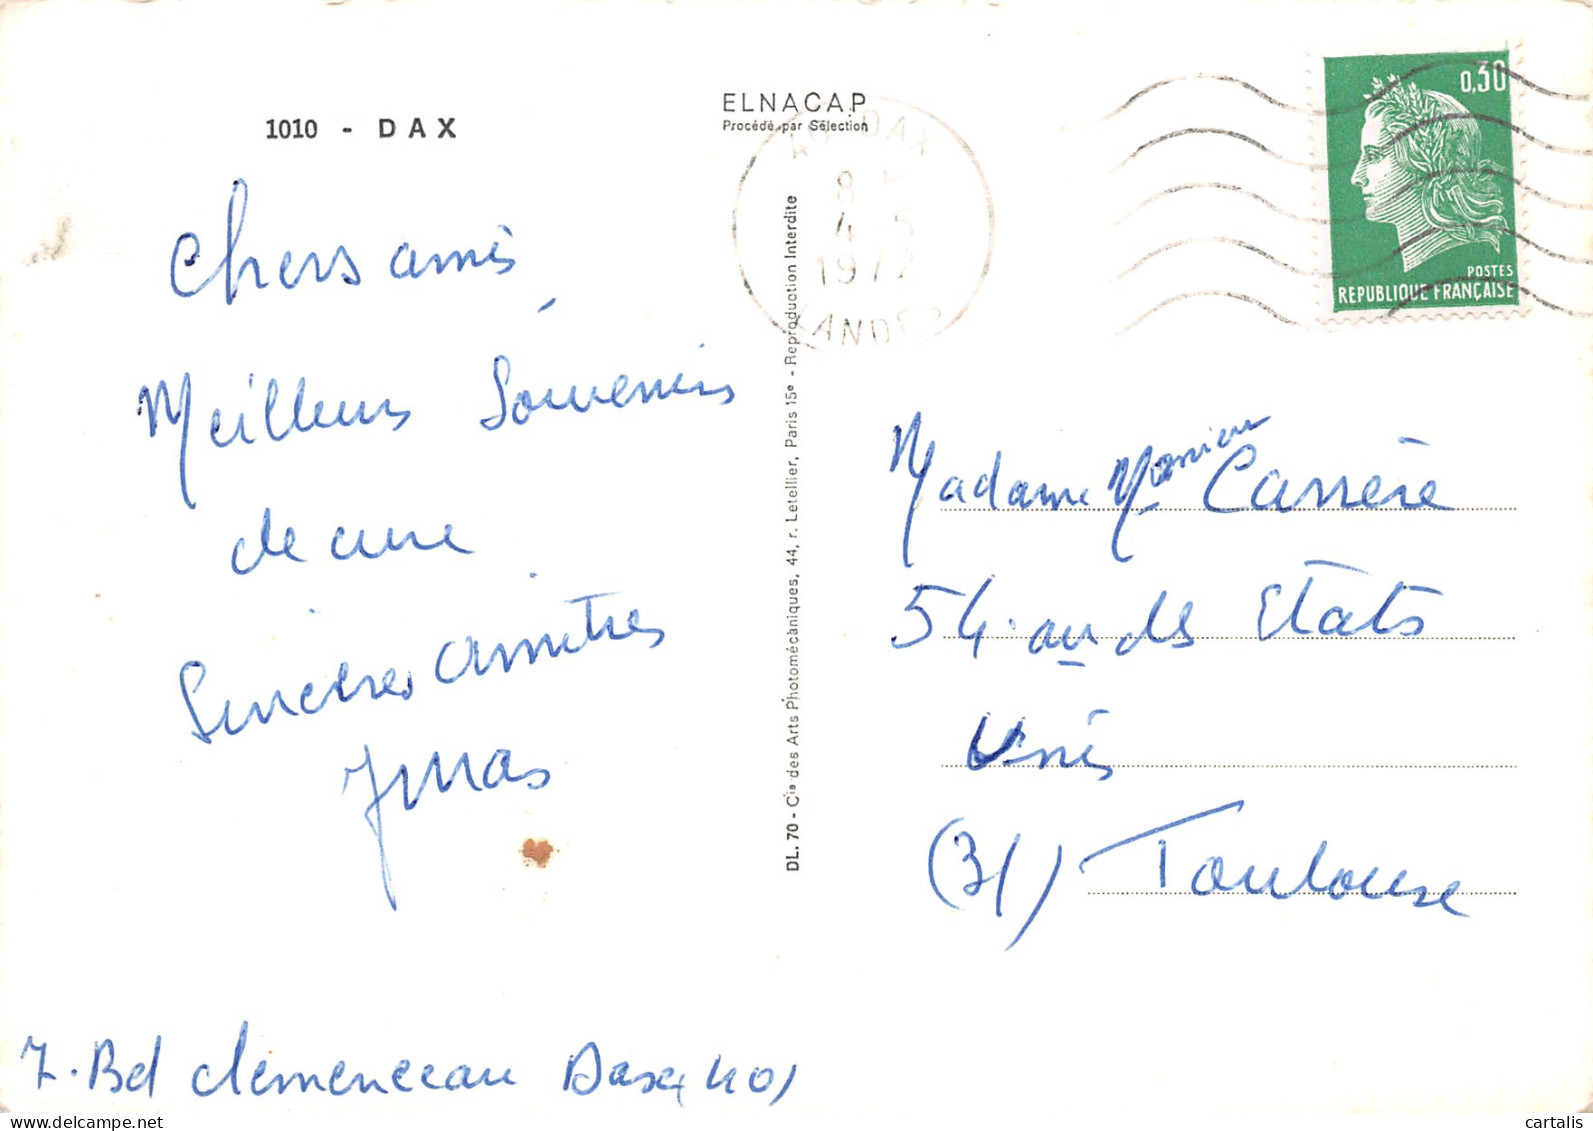 1010 - DAX
ELNACAP
Procédé par Sélection
40 DAX
8 H
4 - 5
1972
LANDES
0,30
POSTES
REPUBLIQUE FRANÇAISE
Chers amis
Meilleurs Souvenirs
de cure
Sincères amitiés
7. Bd Clemenceau Dax (40)
DL. 70 - Cie des Arts Photomécaniques, 44, r. Letellier, Paris 15e - Reproduction Interdite
Madame Monsieur Carrère
54. av des Etats
Unis
(31) Toulouse
cartalis
www.delcampe.net